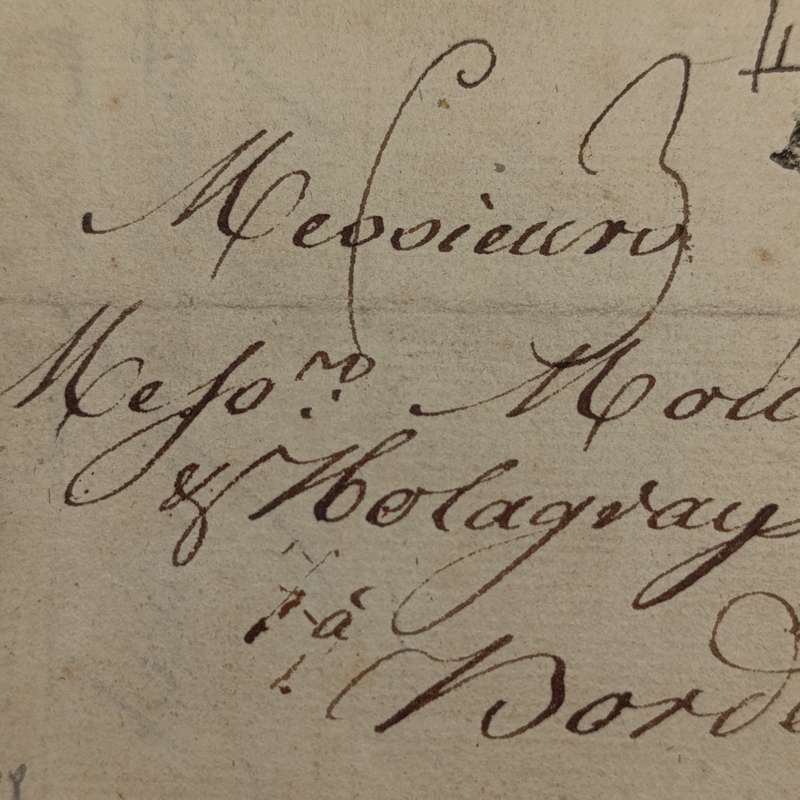 Messieurs
Messrs. Mou
& Holagray
à
Borde